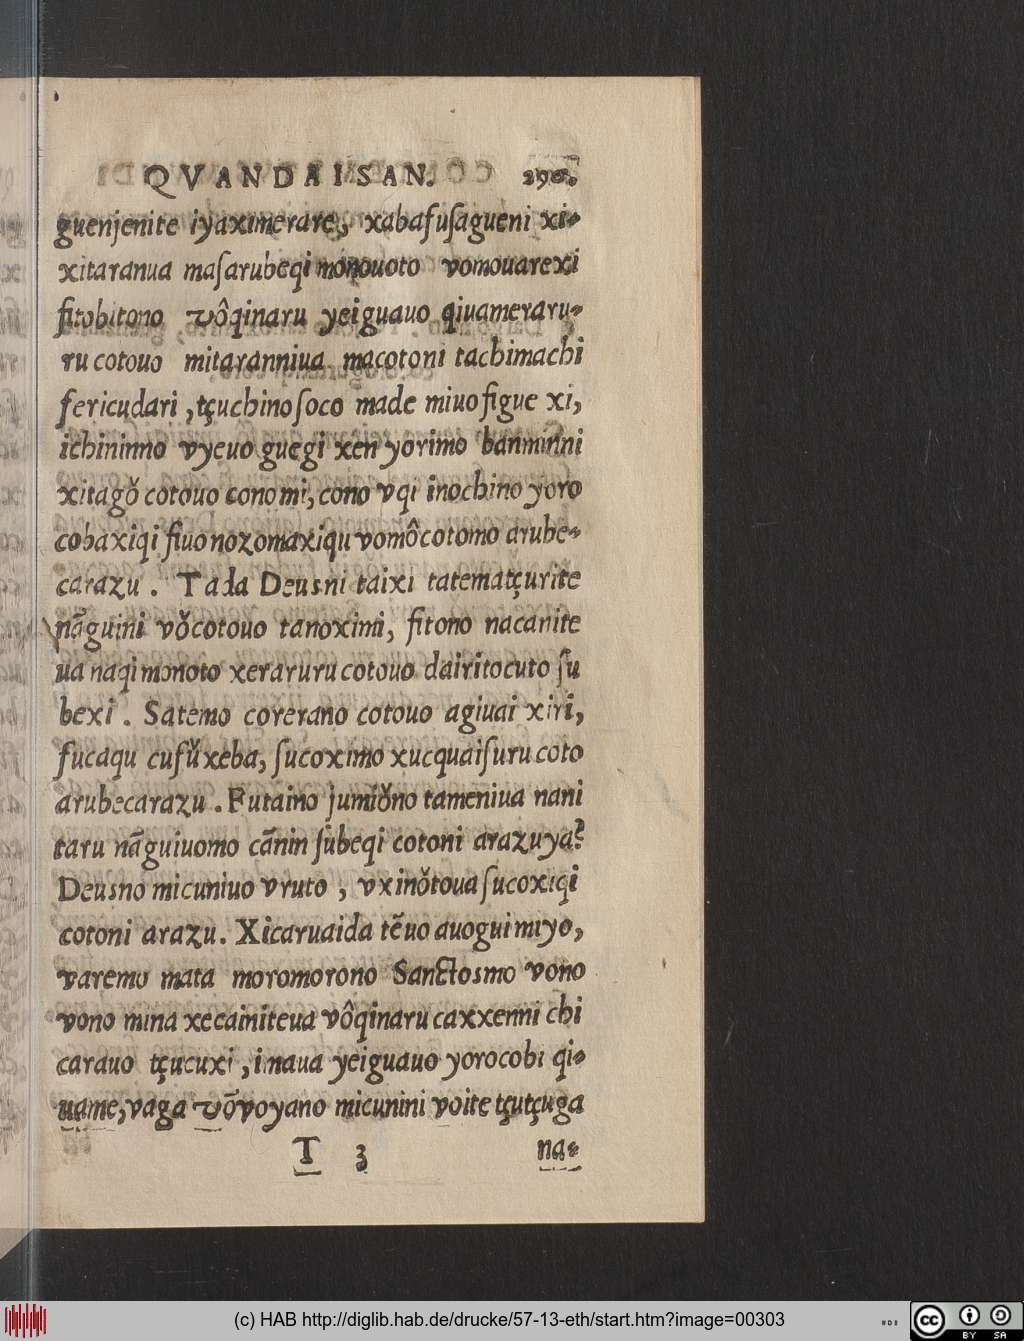 QVANDAI SAN. 290.
guenjenite iyaximerare, xabafuſagueni xi-
xitaranua maſarubeqi monouoto vomouarexi
fitobitono vôqinaru yeiguauo qiuameraru-
ru cotouo mitaranniua macotoni tachimachi
fericudari, tçuchino ſoco made miuo figue xi,
ichininno vyeuo guegi xen yorimo banminni
xitagǒ cotouo conomi, cono vqi inochino yoro
cobaxiqi fiuo nozomaxiqu vomô cotomo arube-
carazu. Tada Deusni taixi tatematçurite
nãguini vǒ cotouo tanoximi, fitono nacanite
ua naqi monoto xeraruru cotouo dairitocuto ſu
bexi. Satemo corerano cotouo agiuai xiri,
fucaqu cufǔ xeba, ſucoximo xucquai ſuru coto
arubecarazu. Futaino jumiǒno tameniua nani
taru nãguiuomo cãnin ſubeqi cotoni arazuya?
Deusno micuniuo vruto, vxinǒtoua ſucoxiqi
cotoni arazu. Xicaruaida tẽuo auogui miyo,
varemo mata moromorono Sanctosmo vono
vono mina xecainiteua vôqinaru caxxenni chi
carauo tçucuxi, imaua yeiguauo yorocobi qi-
uame, vaga vǒvoyano micunini voite tçutçuga
T 3 na-
(c) HAB http://diglib.hab.de/drucke/57-13-eth/start.htm?image=00303
cc BY SA